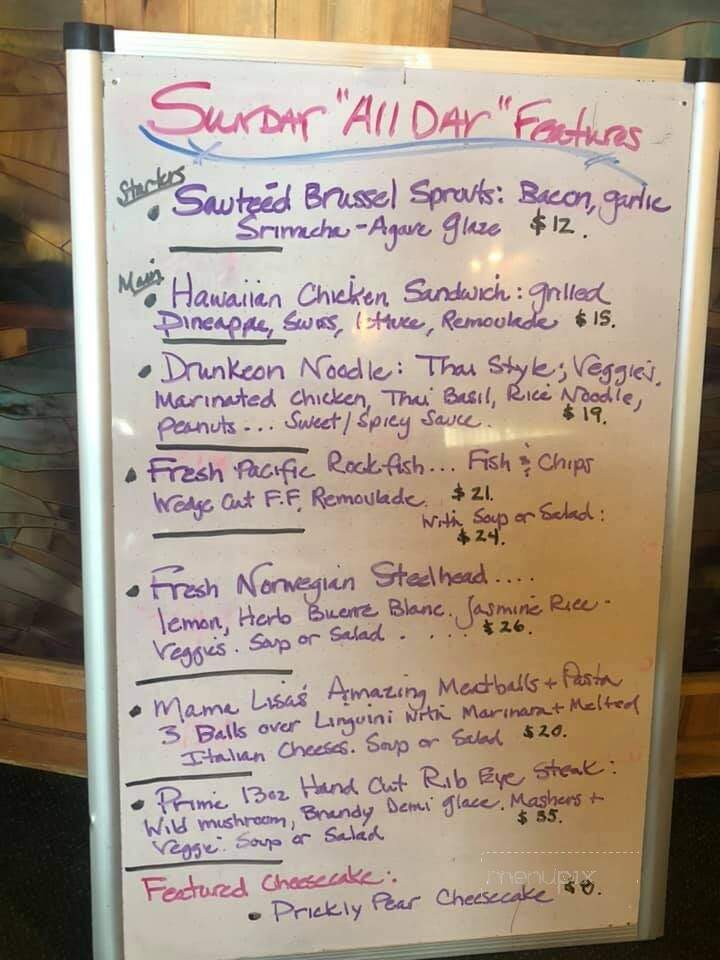 Sunday "All Day" Features
Starters
• Sauteed Brussel Sprouts: Bacon, garlic
Sriracha-Agave Glaze $12.
Main
• Hawaiian Chicken Sandwich: grilled
Pineapple, Swiss, lettuce, Remoulade $15.
• Drunkeon Noodle: Thai Style; Veggies,
Marinated Chicken, Thai Basil, Rice Noodle,
Peanuts... Sweet/Spicy Sauce. $19.
• Fresh Pacific Rockfish... Fish & Chips
Wedge Cut F.F, Remoulade. $21.
With Soup or Salad:
$24.
• Fresh Norwegian Steelhead....
lemon, Herb Buerre Blanc. Jasmine Rice-
Veggies. Soup or Salad ..... $26.
• Mama Lisas' Amazing Meatballs + Pasta
3 Balls over Linguini with Marinara + Melted
Italian Cheeses. Soup or Salad $20.
• Prime 13oz Hand Cut Rib Eye Steak:
Wild mushroom, Brandy Demi glace. Mashers +
Veggie. Soup or Salad $35.
Featured Cheesecake:
• Prickly Pear Cheesecake $8.
menupix